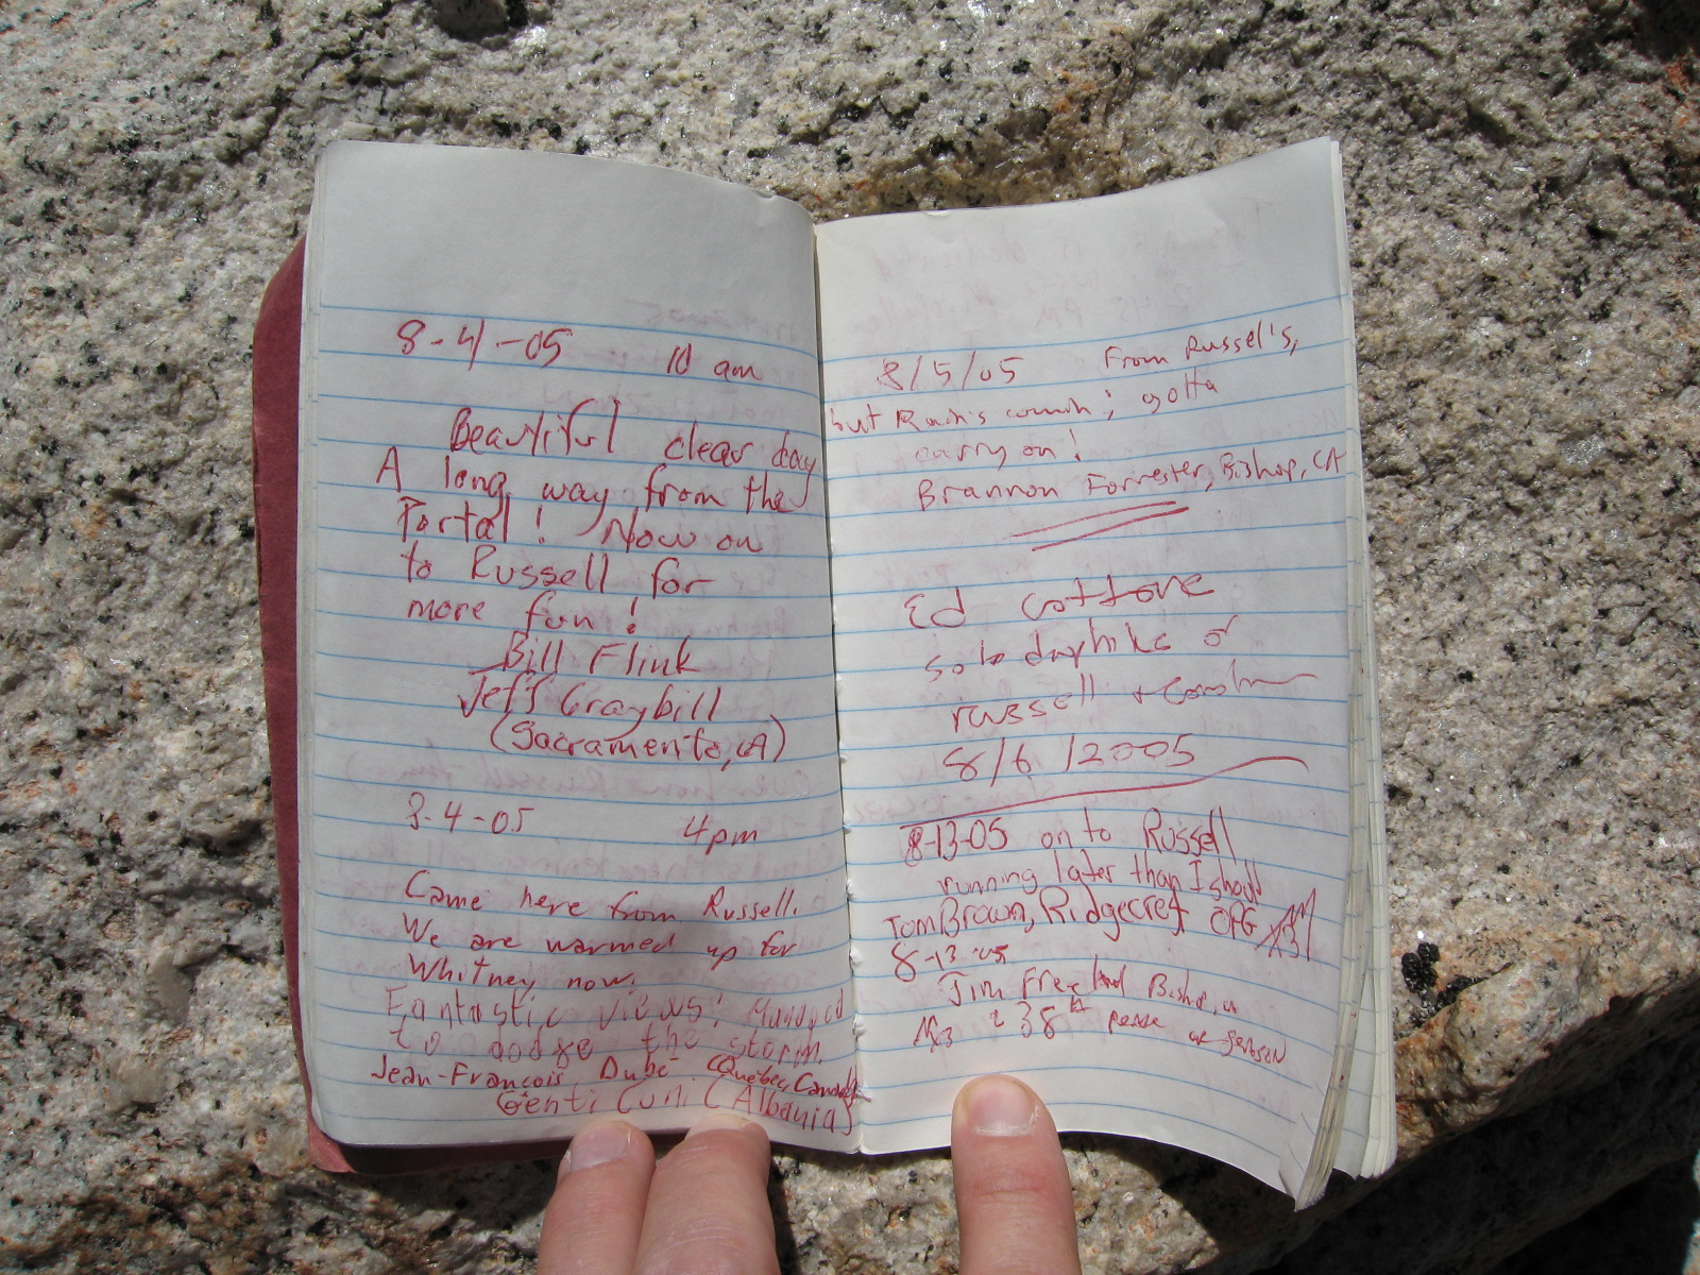 8-4-05 10 am
Beautiful clear day
A long way from the
Portal! Now on
to Russell for
more fun!
Bill Flink
Jeff Graybill
(Sacramento, CA)
8-4-05 4pm
Came here from Russell.
We are warmed up for
Whitney now.
Fantastic views! Managed
to dodge the storm.
Jean-François Dubé (Québec, Canada)
Genti Cuni (Albania)
8/5/05 From Russel's,
but Rain's comin; gotta
carry on!
Brannon Forrester, Bishop, CA
Ed Cottone
solo dayhike of
russell +
8/6/2005
8-13-05 on to Russell
running later than I should
Tom Brown, Ridgecrest OPG
8-13-05
Jim Freeland Bishop, CA
38th